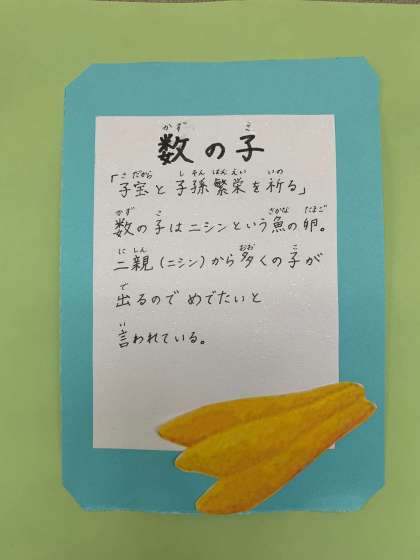 数の子
「子宝と子孫繁栄を祈る」
数の子はニシンという魚の卵。
二親(ニシン)から多くの子が
出るので めでたいと
言われている。